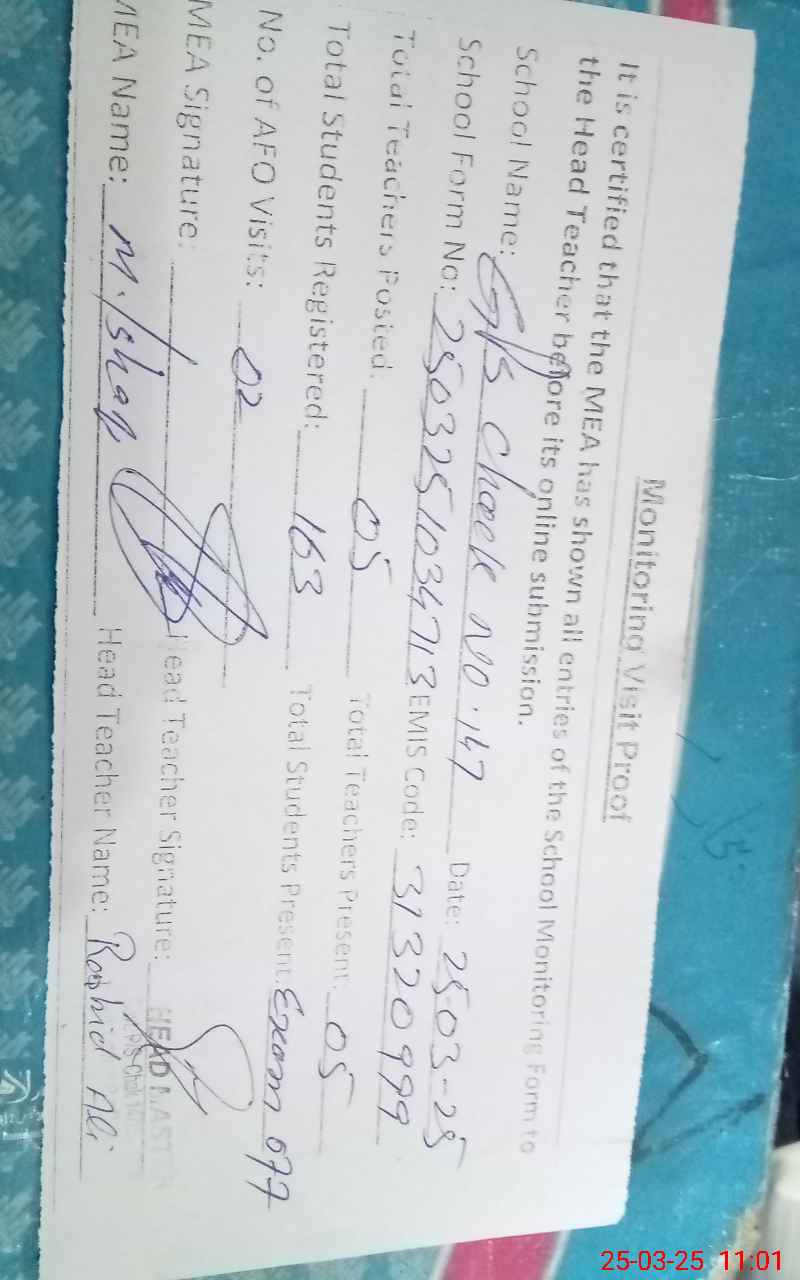 Monitoring Visit Proof
It is certified that the MEA has shown all entries of the School Monitoring Form to
the Head Teacher before its online submission.
School Name: G/S Chack NO. 147 Date: 25-03-25
School Form No: 2503251034713 EMIS Code: 31320999
Total Teachers Posted: 05 Total Teachers Present: 05
Total Students Registered: 163 Total Students Present: Exam
No. of AFO Visits: 02
MEA Signature: Head Teacher Signature: HEAD MASTER
MEA Name: M. Ishaq Head Teacher Name: Rashid Ali
25-03-25 11:01